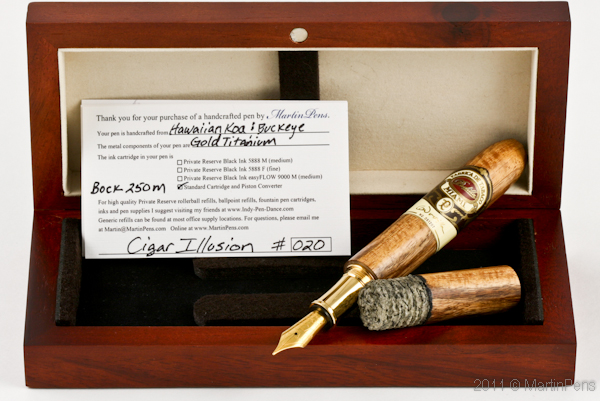 Thank you for your purchase of a handcrafted pen by MartinPens.
Your pen is handcrafted from Hawaiian Koa & Buckeye
The metal components of your pen are Gold Titanium
The ink cartridge in your pen is
Private Reserve Black Ink 5888 M (medium)
Private Reserve Black Ink 5888 F (fine)
Private Reserve Black Ink easyFLOW 9000 M (medium)
Bock 250 M Standard Cartridge and Piston Converter
For high quality Private Reserve rollerball refills, ballpoint refills, fountain pen cartridges,
inks and pen supplies I suggest visiting my friends at www.Indy-Pen-Dance.com
Generic refills can be found at most office supply locations. For questions, please email me
at Martin@MartinPens.com Online at www.MartinPens.com
Cigar Illusion # 020
2011 © MartinPens